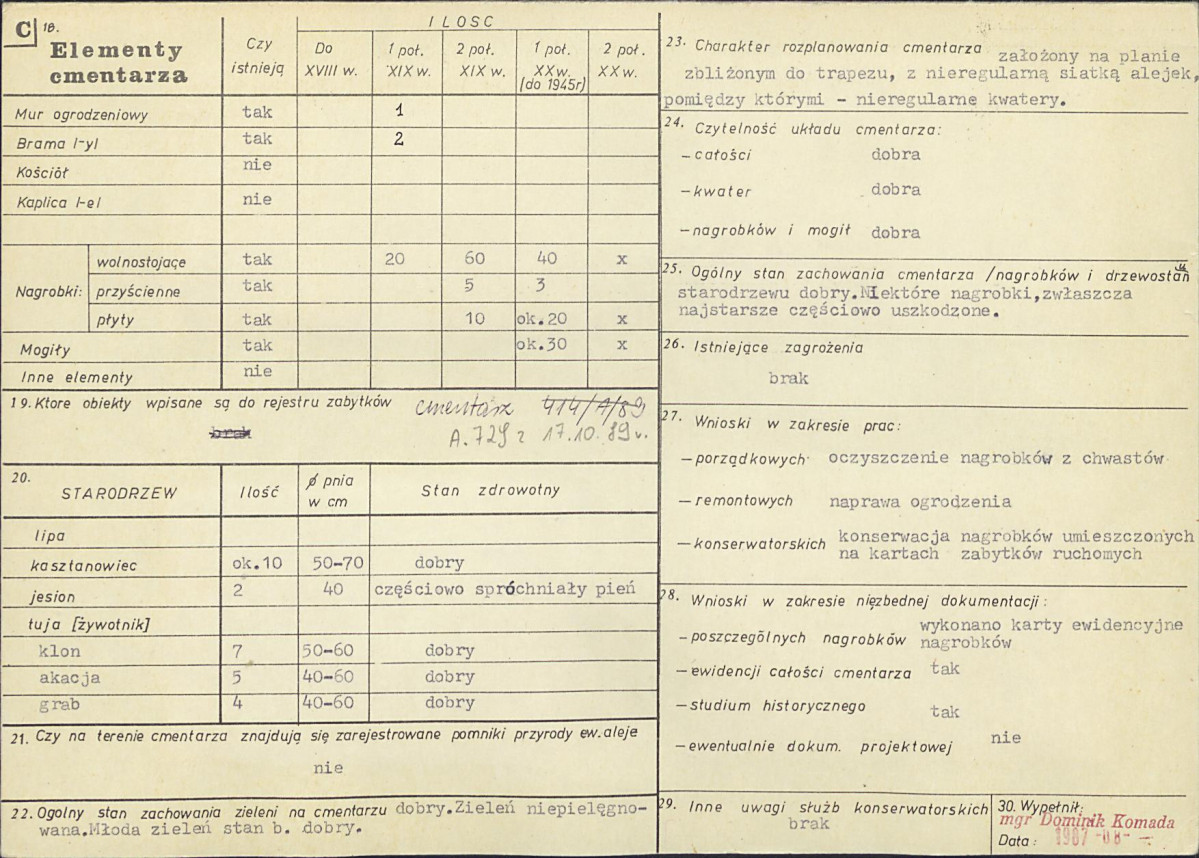 C 18.
Elementy
cmentarza
Czy
istnieją
ILOSC
Do
XVIII w.
1 poł.
XIX w.
2 poł.
XIX w.
1 poł.
XX w.
(do 1945r)
2 poł.
XX w.
Mur ogrodzeniowy tak 1
Brama /-y/ tak 2
Kościół nie
Kaplica /-e/ nie
Nagrobki:
wolnostojące tak 20 60 40 x
przyścienne tak 5 3
płyty tak 10 ok.20 x
Mogiły tak ok.30 x
Inne elementy nie
19. Ktore obiekty wpisane są do rejestru zabytków cmentarz 414/A/89
brak A.729 z 17.10.89 r.
20.
STARODRZEW Ilość ø pnia
w cm Stan zdrowotny
lipa
kasztanowiec ok.10 50-70 dobry
jesion 2 40 częściowo spróchniały pień
tuja [żywotnik]
klon 7 50-60 dobry
akacja 5 40-60 dobry
grab 4 40-60 dobry
21. Czy na terenie cmentarza znajdują się zarejestrowane pomniki przyrody ew. aleje
nie
22. Ogolny stan zachowania zieleni na cmentarzu dobry.Zieleń niepielęgno-
wana.Młoda zieleń stan b. dobry.
23. Charakter rozplanowania cmentarza założony na planie
zbliżonym do trapezu, z nieregularną siatką alejek,
pomiędzy którymi - nieregularne kwatery.
24. Czytelność układu cmentarza:
-całości dobra
-kwater dobra
-nagrobków i mogił dobra
25. Ogólny stan zachowania cmentarza /nagrobków i drzewostanu
starodrzewu dobry.Niektóre nagrobki,zwłaszcza
najstarsze częściowo uszkodzone.
26. Istniejące zagrożenia
brak
27. Wnioski w zakresie prac:
-porządkowych oczyszczenie nagrobków z chwastów
-remontowych naprawa ogrodzenia
-konserwatorskich konserwacja nagrobków umieszczonych
na kartach zabytków ruchomych
28. Wnioski w zakresie nięzbednej dokumentacji:
-poszczególnych nagrobków wykonano karty ewidencyjne
nagrobków
-ewidencji całości cmentarza tak
-studium historycznego tak
-ewentualnie dokum. projektowej nie
29. Inne uwagi służb konserwatorskich
brak
30. Wypełnił:
mgr Dominik Komada
Data: 1987 -08- -